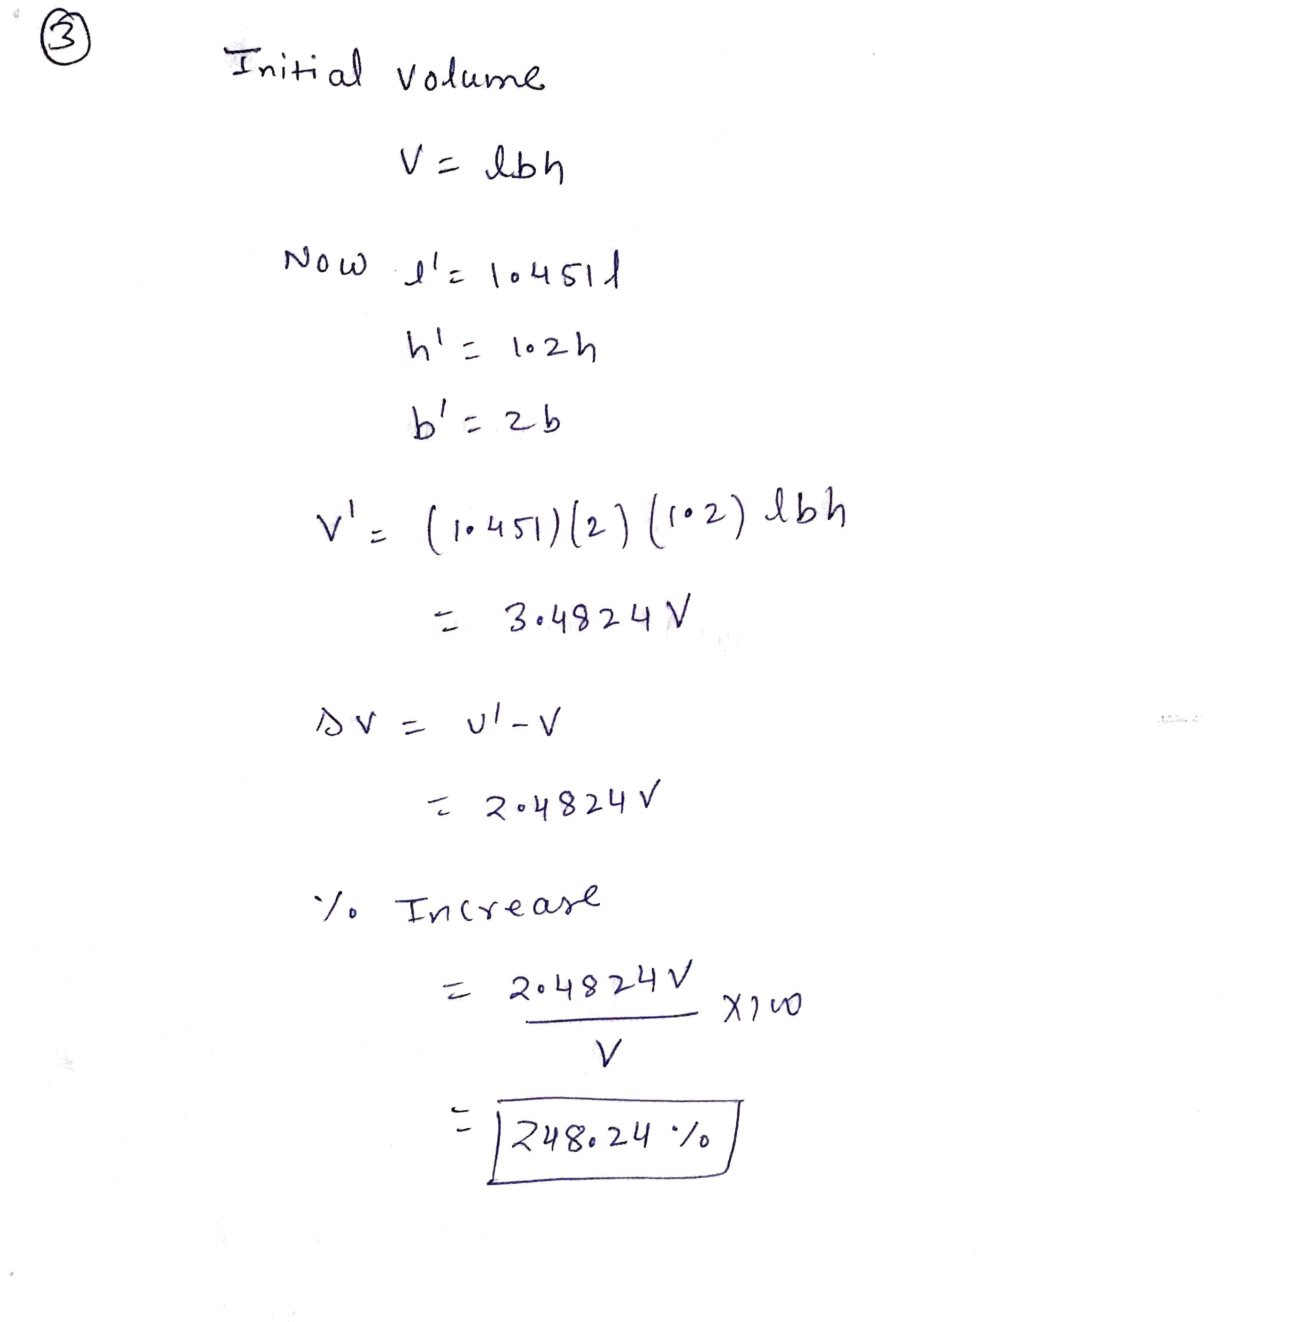 ③
Initial volume
V = lbh
Now l' = 1.451l
h' = 1.2h
b' = 2b
V' = (1.451)(2)(1.2) lbh
= 3.4824 V
ΔV = V' - V
= 2.4824 V
% Increase
= 2.4824 V / V × 100
= 248.24 %